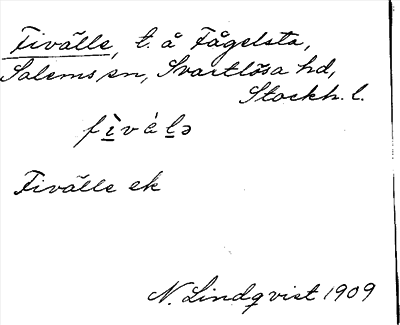 Fivälle, t. å Fågelsta,
Salems sn, Svartlösa hd,
Stockh. l.
fì̠vé̀l̠ə
Fivälle ek
N. Lindqvist 1909